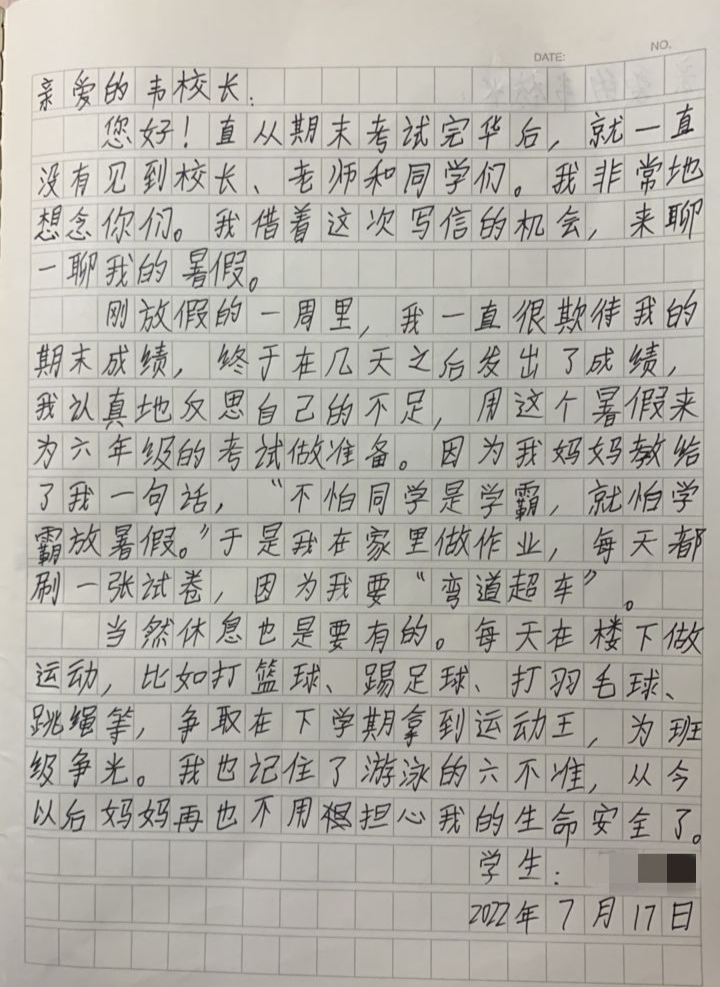 DATE:
NO.
亲爱的韦校长：
您好！直从期末考试完华后，就一直
没有见到校长、老师和同学们。我非常地
想念你们。我借着这次写信的机会，来聊
一聊我的暑假。
刚放假的一周里，我一直很欺待我的
期末成绩，终于在几天之后发出了成绩，
我认真地反思自己的不足，用这个暑假来
为六年级的考试做准备。因为我妈妈教给
了我一句话，“不怕同学是学霸，就怕学
霸放暑假。”于是我在家里做作业，每天都
刷一张试卷，因为我要“弯道超车”。
当然休息也是要有的。每天在楼下做
运动，比如打篮球、踢足球、打羽毛球、
跳绳等，争取在下学期拿到运动王，为班
级争光。我也记住了游泳的六不准，从今
以后妈妈再也不用担心我的生命安全了。
学生：
2022年7月17日